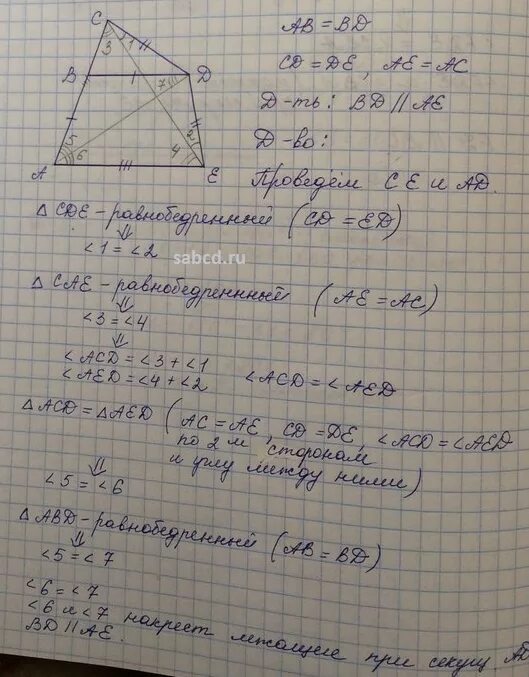 C
3 1
B
7
D
5
6
2
4
A
E
AB = BD
CD = DE, AE = AC
Д-ть: BD || AE
Д-во:
Проведём CE и AD.
△ CDE - равнобедренный (CD = ED)
⇓
∠1 = ∠2
sabcd.ru
△ CAE - равнобедреннный (AE = AC)
⇓
∠3 = ∠4
⇓
∠ACD = ∠3 + ∠1
∠AED = ∠4 + ∠2 ∠ACD = ∠AED
△ ACD = △AED (AC = AE, CD = DE, ∠ACD = ∠AED
по 2 м сторонам
и углу между ними)
⇓
∠5 = ∠6
△ ABD - равнобедренный (AB = BD)
⇓
∠5 = ∠7
∠6 = ∠7
∠6 и ∠7 накрест лежащие при секущ AD
BD || AE.